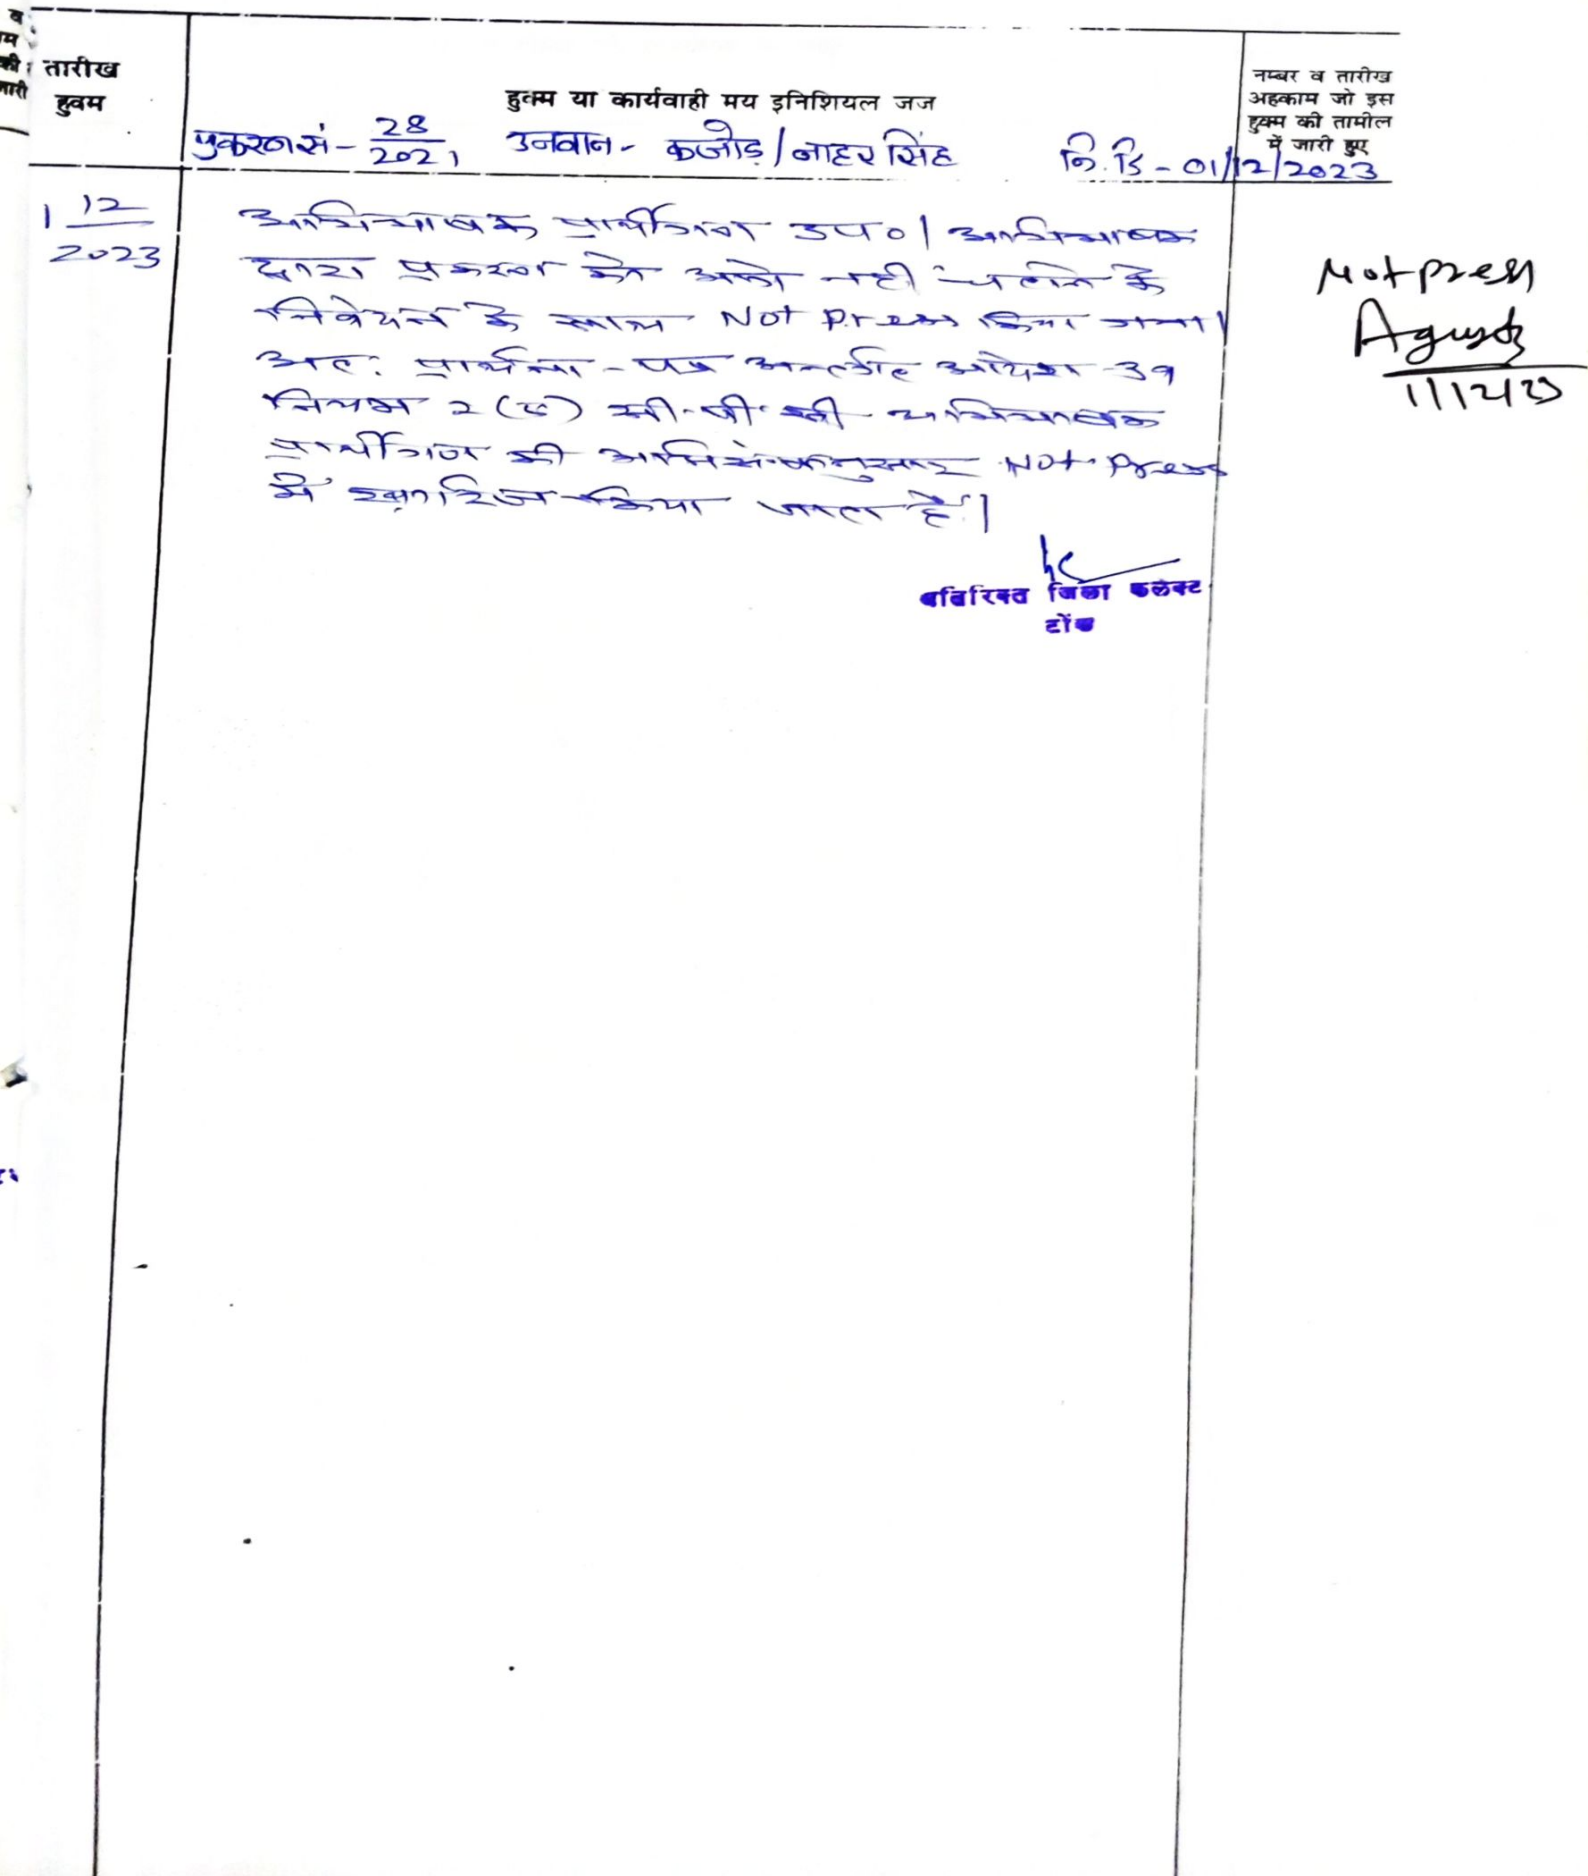 तारीख
हुक्म
हुक्म या कार्यवाही मय इनिशियल जज
नम्बर व तारीख
अहकाम जो इस
हुक्म की तामील
में जारी हुए
प्रकरण सं- 28/2021 उनवान- कजोड़/नाहर सिंह नि. दि - 01/12/2023
1 12
2023
अभिभाषक प्रार्थीगण उप०। अभिभाषक
द्वारा प्रकरण को आगे नहीं चलाने के
निवेदन के साथ Not Press किया गया।
अतः प्रार्थना-पत्र अन्तर्गत आदेश-39
नियम 2 सी.पी.सी अभिभाषक
प्रार्थीगण की Not Press
में खारिज किया जाता है।
अतिरिक्त जिला कलेक्ट
टोंक
Not press
1/12/23